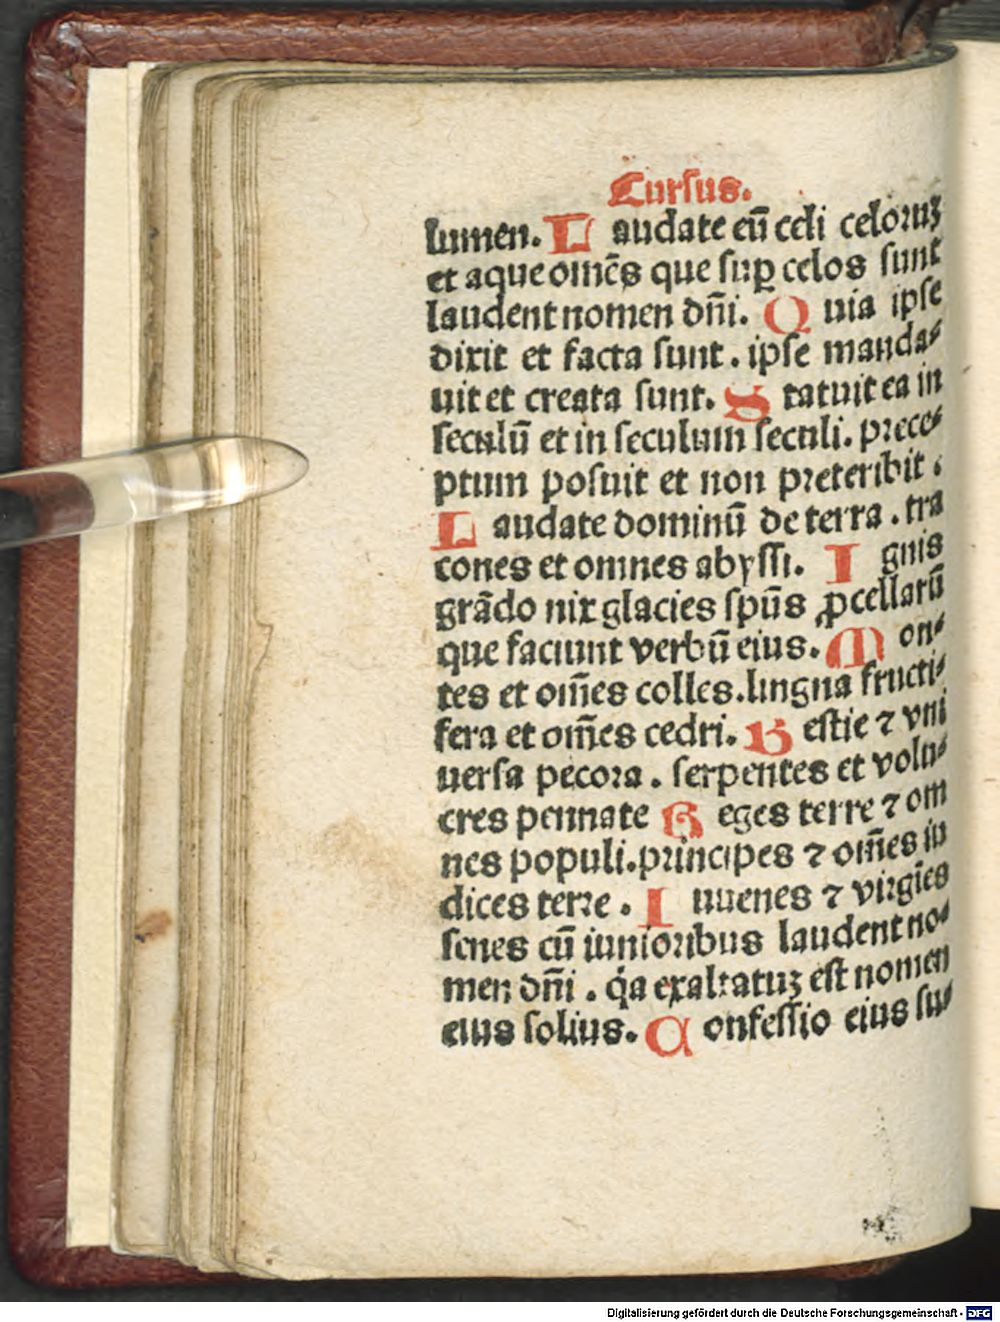 Cursus.
lumen. Laudate eū celi celoꝝ
et aque omēs que suꝑ celos sunt
laudent nomen dn̄i. Quia ipse
dixit et facta sunt. ipse manda⸗
uit et creata sunt. Statuit ea in
seculū et in seculum seculi. prece⸗
ptum posuit et non preteribit.
Laudate dominū de terra. tra
cones et omnes abyssi. Ignis
grādo nix glacies sp̄us ꝓcellarū
que faciunt verbū eius. Mon⸗
tes et om̄es colles. lingna fructi⸗
fera et om̄es cedri. Bestie ⁊ vni
uersa pecora. serpentes et volu⸗
cres pennate Reges terre ⁊ om
nes populi. principes ⁊ om̄es iu
dices terre. Iuuenes ⁊ virgīes
senes cū iunioribus laudent no⸗
men dn̄i. qͥa exaltatuꝫ est nomen
eius solius. Confessio eius su⸗
Digitalisierung gefördert durch die Deutsche Forschungsgemeinschaft - DFG